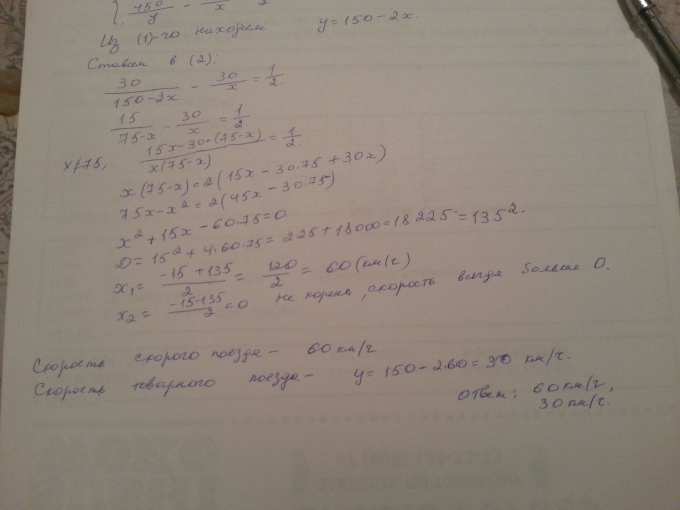 450/y - /x 2
Из (1)-го находим y=150-2x.
Ставим в (2):
30/(150-2x) - 30/x = 1/2
15/(75-x) - 30/x = 1/2
x≠75, (15x-30·(75-x))/(x(75-x)) = 1/2
x(75-x)=2(15x-30·75+30x)
75x-x²=2(45x-30·75)
x²+15x-60·75=0
D=15²+4·60·75=225+18000=18225=135².
x₁= (-15+135)/2 = 120/2 = 60 (км/г)
x₂= (-15-135)/2 =0 не корень, скорость всегда больше 0.
Скорость скорого поезда - 60 км/г
Скорость товарного поезда - y=150-2·60=30 км/г.
Ответ: 60 км/г,
30 км/г.